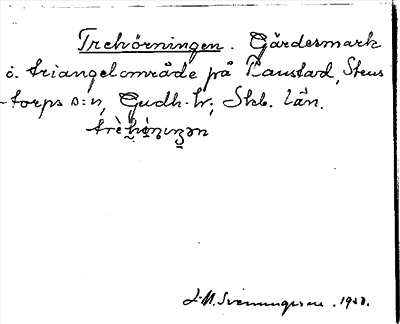 Trehörningen. Gärdesmark
o. triangelområde på Raustad, Stens
-torps s:n, Gudh. hr; Skb. län.
J. M. Svenningsson. 1928.